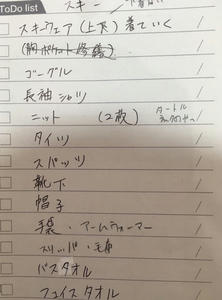 ToDo list
スキー
スキーウェア(上下)着ていく
ゴーグル
長袖シャツ
ニット (2枚) タートル
タイツ
スパッツ
靴下
帽子
手袋・アームウォーマー
スリッパ・毛布
バスタオル
フェイスタオル